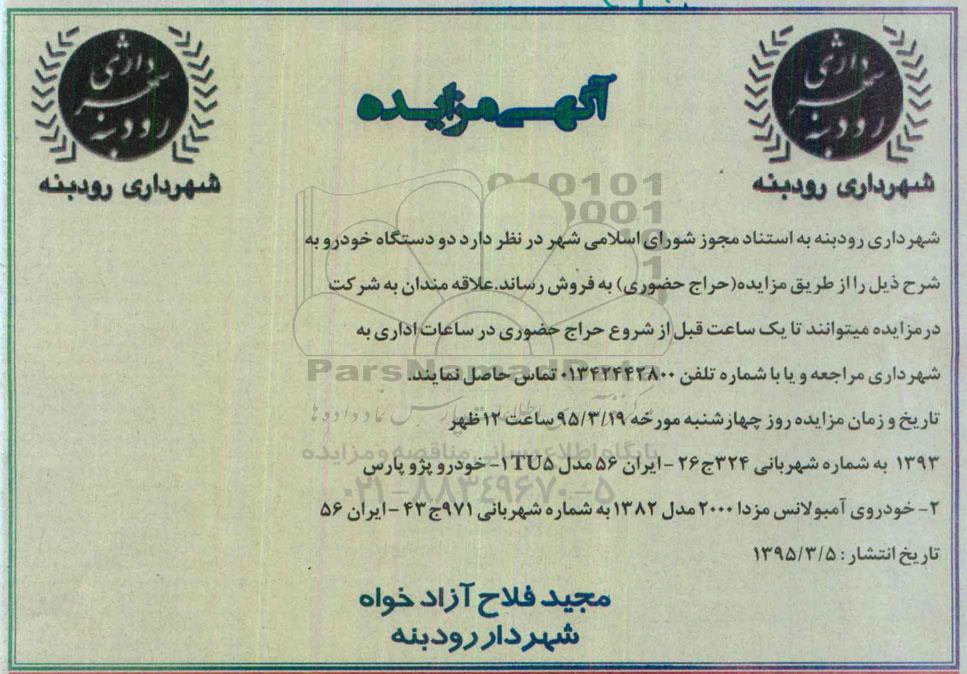 دارائی شهر رودبنه
شهرداری رودبنه
دارائی شهر رودبنه
شهرداری رودبنه
آگهی مزایده
شهرداری رودبنه به استناد مجوز شورای اسلامی شهر در نظر دارد دو دستگاه خودرو به
شرح ذیل را از طریق مزایده(حراج حضوری) به فروش رساند.علاقه مندان به شرکت
درمزایده میتوانند تا یک ساعت قبل از شروع حراج حضوری در ساعات اداری به
شهرداری مراجعه و یا با شماره تلفن ۰۱۳۴۲۴۴۲۸۰۰ تماس حاصل نمایند.
تاریخ و زمان مزایده روز چهارشنبه مورخه ۹۵/۳/۱۹ ساعت ۱۲ ظهر
۱۳۹۳ به شماره شهربانی ۳۲۴ج۲۶ -ایران ۵۶ مدل TU۵ ۱- خودرو پژو پارس
۲- خودروی آمبولانس مزدا ۲۰۰۰ مدل ۱۳۸۲ به شماره شهربانی ۹۷۱ج۴۳ -ایران ۵۶
تاریخ انتشار : ۱۳۹۵/۳/۵
مجید فلاح آزاد خواه
شهردار رودبنه
010101
0001
10
1
ParsNamadData
پایگاه اطلاع رسانی مناقصه و مزایده
۰۲۱-۸۸۳۴۹۶۷۰-۵